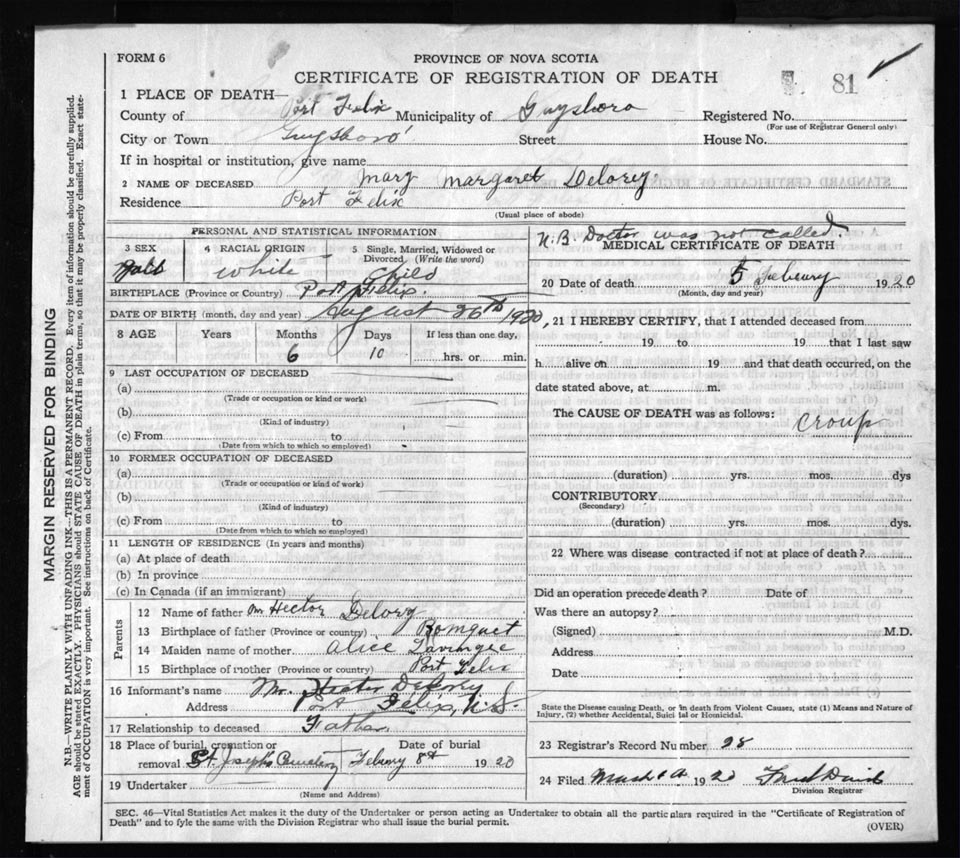 FORM 6
PROVINCE OF NOVA SCOTIA
CERTIFICATE OF REGISTRATION OF DEATH
81
1 PLACE OF DEATH—
County of Port Felix Municipality of Guysboro Registered No.
(For use of Registrar General only)
City or Town Guysboro Street House No.
If in hospital or institution, give name
2 NAME OF DECEASED Mary Margaret Delorey
Residence Port Felix
(Usual place of abode)
PERSONAL AND STATISTICAL INFORMATION
3 SEX
4 RACIAL ORIGIN
white
5 Single, Married, Widowed or Divorced (Write the word)
Child
BIRTHPLACE (Province or Country) Port Felix.
DATE OF BIRTH (month, day and year) August 26th 1920
8 AGE Years Months Days If less than one day,
6 10 hrs. or min.
9 LAST OCCUPATION OF DECEASED
(a)
(Trade or occupation or kind or work)
(b)
(Kind of industry)
(c) From to
(Date from which to which so employed)
10 FORMER OCCUPATION OF DECEASED
(a)
(Trade or occupation or kind of work)
(b)
(Kind of industry)
(c) From to
(Date from which to which so employed)
11 LENGTH OF RESIDENCE (In years and months)
(a) At place of death
(b) In province
(c) In Canada (if an immigrant)
Parents
12 Name of father Mr Hector Delory
13 Birthplace of father (Province or country) Pomquet
14 Maiden name of mother Alice
15 Birthplace of mother (Province or country) Port Felix
16 Informant's name Mr. Hector Delorey
Address Port Felix, N.S.
17 Relationship to deceased Father
18 Place of burial, cremation or removal St. Josephs Cemetery
Date of burial Febuary 8th 1920
19 Undertaker
(Name and Address)
N.B. Doctor was not called.
MEDICAL CERTIFICATE OF DEATH
20 Date of death 5 Febuary 1920
(Month, day and year)
21 I HEREBY CERTIFY, that I attended deceased from
19 to 19 that I last saw
h alive on 19 and that death occurred, on the
date stated above, at m.
The CAUSE OF DEATH was as follows:
Croup
(duration) yrs. mos. dys
CONTRIBUTORY
(Secondary)
(duration) yrs. mos. dys.
22 Where was disease contracted if not at place of death?
Did an operation precede death? Date of
Was there an autopsy?
(Signed) M.D.
Address
Date
State the Disease causing Death, or in death from Violent Causes, state (1) Means and Nature of
Injury, (2) whether Accidental, Suicidal or Homicidal.
23 Registrar's Record Number 28
24 Filed 1920
Division Registrar
SEC. 46—Vital Statistics Act makes it the duty of the Undertaker or person acting as Undertaker to obtain all the particulars required in the "Certificate of Registration of
Death" and to fyle the same with the Division Registrar who shall issue the burial permit.
(OVER)
MARGIN RESERVED FOR BINDING
N.B.—WRITE PLAINLY WITH UNFADING INK—THIS IS A PERMANENT RECORD. Every item of information should be carefully supplied.
AGE should be stated EXACTLY. PHYSICIANS should STATE CAUSE OF DEATH in plain terms, so that it may be properly classified. Exact statement of OCCUPATION is very important. See instructions on back of Certificate.